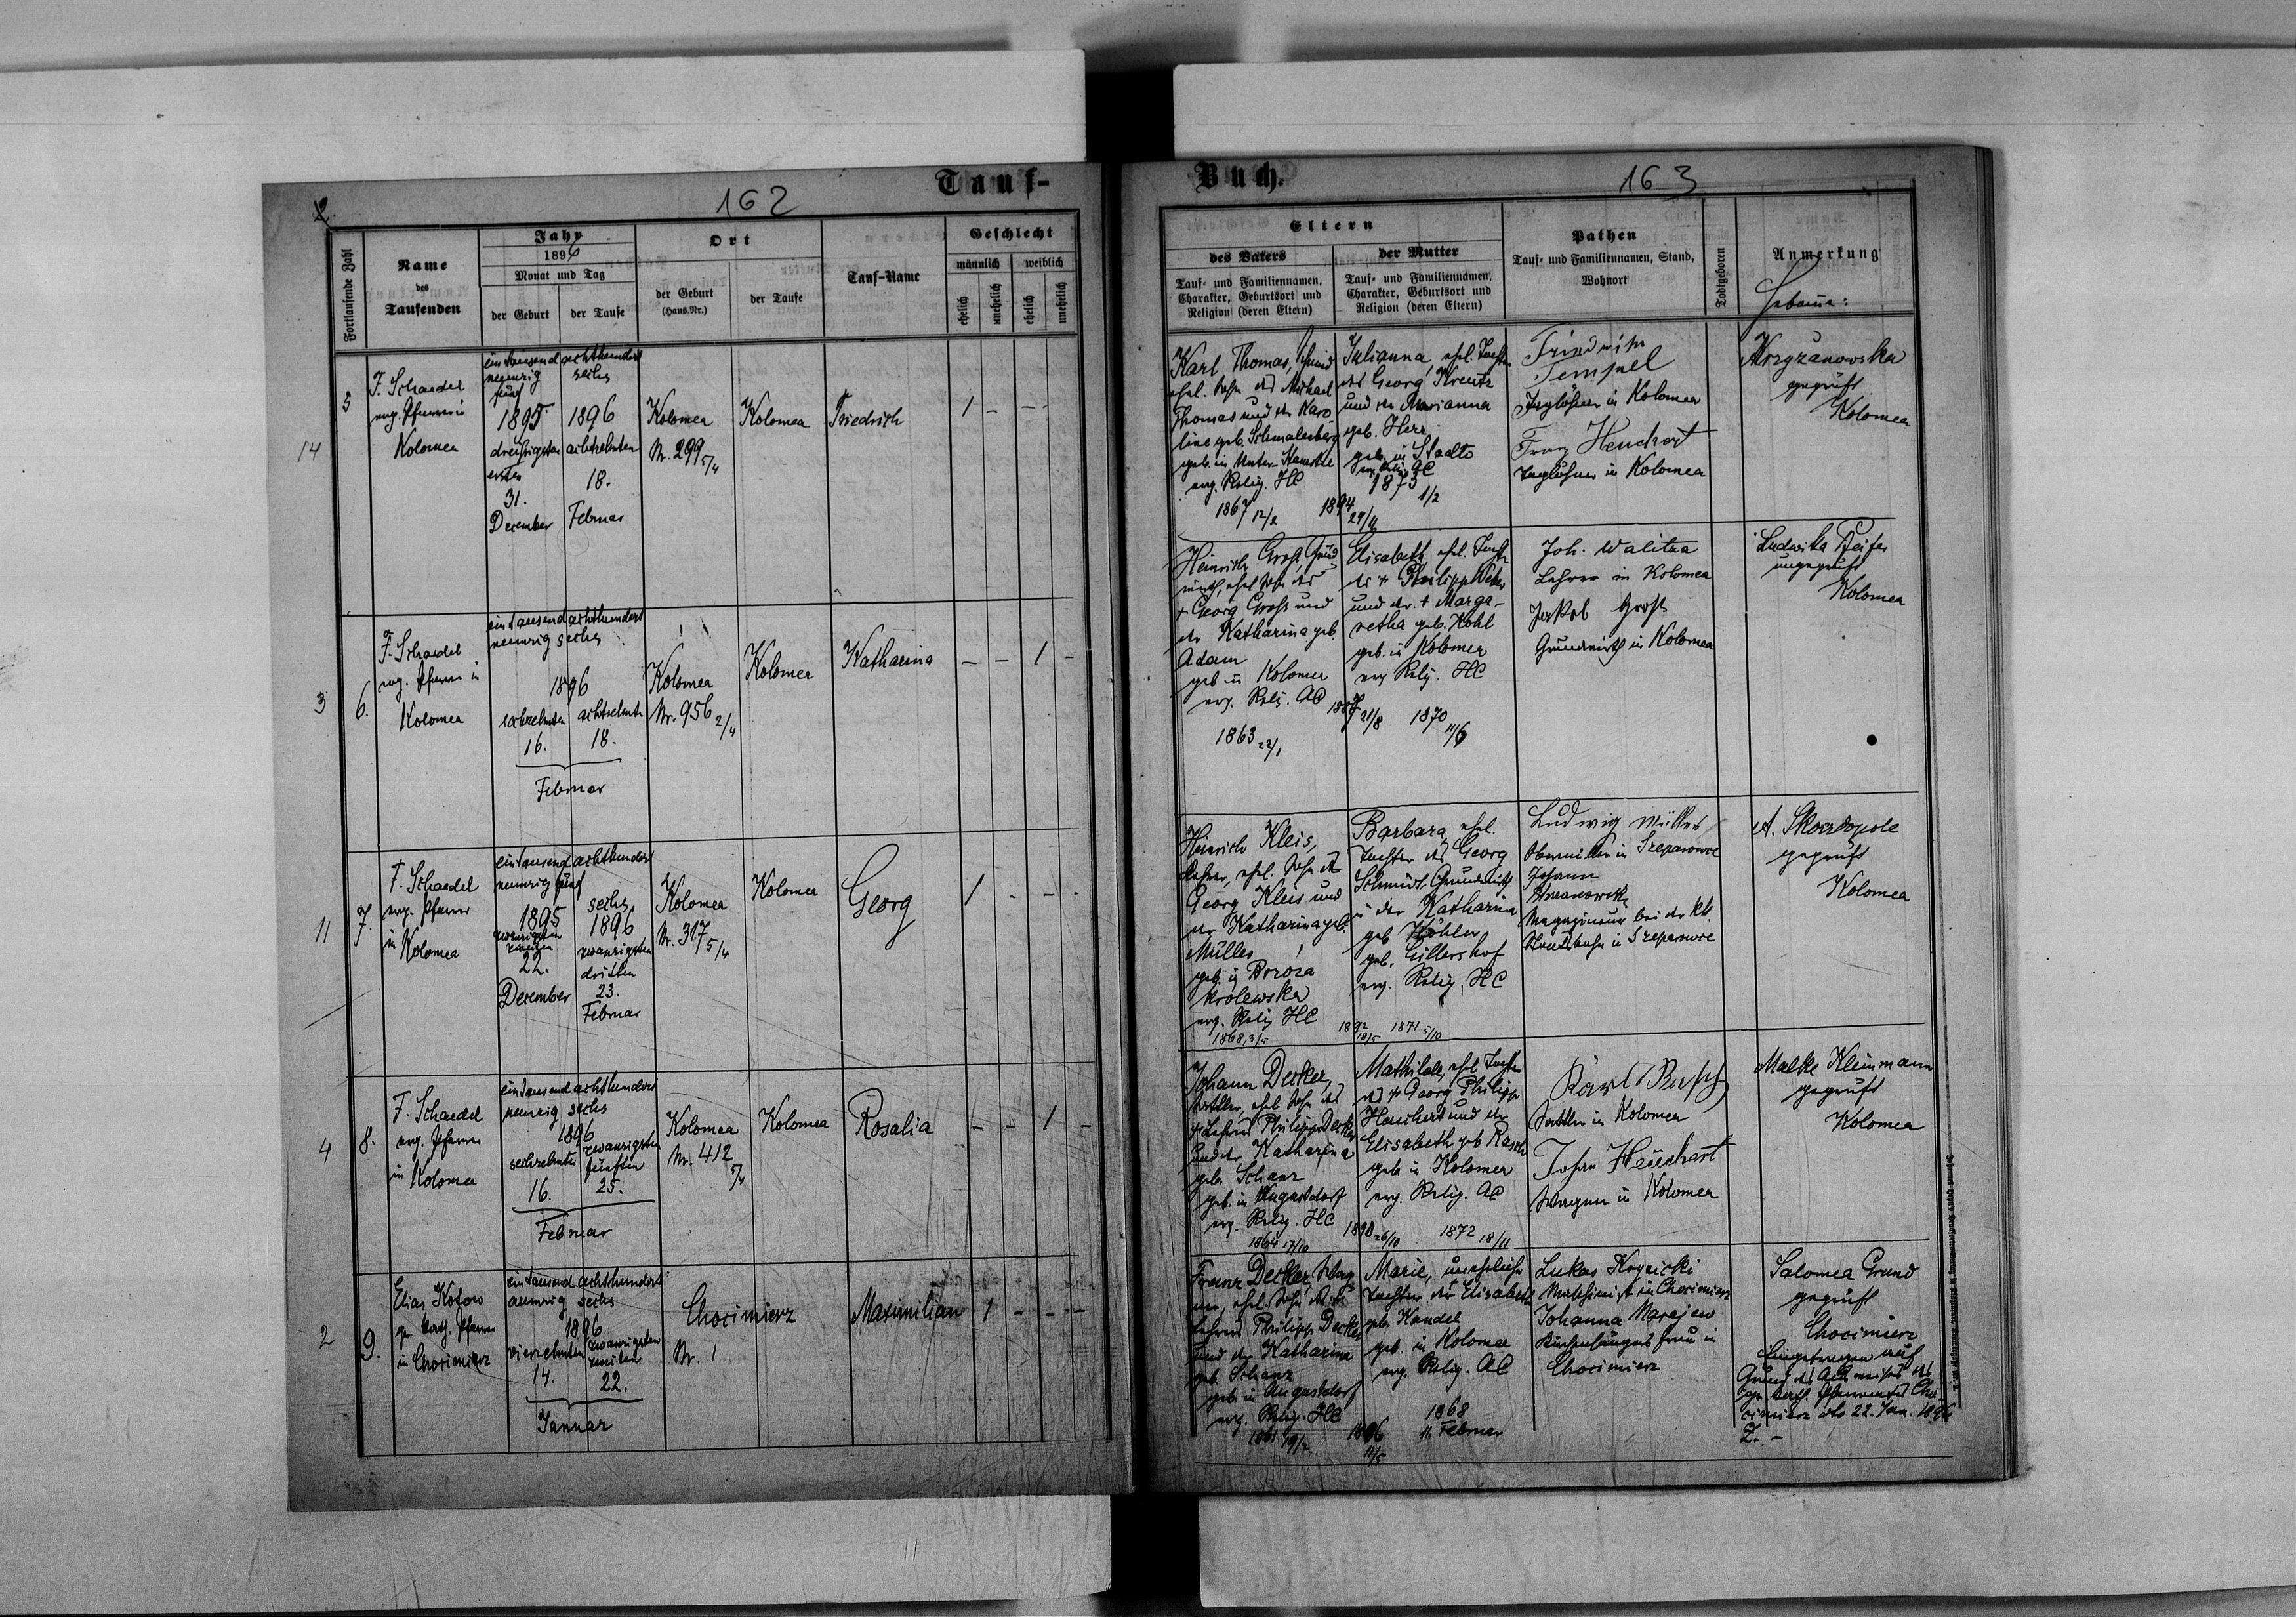 162
Tauf-
Fortlaufende Zahl
Name
des
Taufenden
Jahr
1896
Monat und Tag
der Geburt
der Taufe
Ort
der Geburt
(Haus-Nr.)
der Taufe
Tauf-Name
Geschlecht
männlich
weiblich
ehelich
unehelich
ehelich
unehelich
14
5
F. Schaedel
evg. Pfarrer in
Kolomea
ein tausend achthundert
neunzig
fünf
sechs
1895
1896
dreißigsten
ersten
achtzehnten
31.
18.
December
Februar
Kolomea
Nr. 299 5/4
Kolomea
Friedrich
1 – – –
3
6.
F. Schaedel
evg. Pfarrer in
Kolomea
ein tausend achthundert
neunzig sechs
1896
sechzehnten
achtzehnten
16.
18.
Februar
Kolomea
Nr. 956 2/4
Kolomea
Katharina
– – 1 –
11
7.
F. Schaedel
evg. Pfarrer
in Kolomea
ein tausend achthundert
neunzig fünf
sechs
1895
1896
zwanzigsten
zweiten
zwanzigsten
dritten
22.
23.
December
Februar
Kolomea
Nr. 317 5/4
Kolomea
Georg
1 – – –
4
8.
F. Schaedel
evg. Pfarrer
in Kolomea
ein tausend achthundert
neunzig sechs
1896
sechzehnten
zwanzigsten
fünften
16.
25.
Februar
Kolomea
Nr. 412
5/4
Kolomea
Rosalia
– – 1 –
2
9.
Elias Kotow
gr. kath. Pfarrer
in Chocimierz
ein tausend achthundert
neunzig sechs
1896
vierzehnten
zwanzigsten
zweiten
14.
22.
Januar
Chocimierz
Nr. 1
Maximilian
1 – – –
Buch.
163
Eltern
des Vaters
Tauf- und Familiennamen,
Charakter, Geburtsort und
Religion (deren Eltern)
der Mutter
Tauf- und Familiennamen,
Charakter, Geburtsort und
Religion (deren Eltern)
Pathen
Tauf- und Familiennamen, Stand,
Wohnort
Todtgeboren
Anmerkung
Hebame:
Karl Thomas, Schmid
ehel. Sohn des Michael
Thomas und der Karo
line geb. Schmalenberg
geb. in Unter-
evg. Relig. HC
1867 12/2
1894
29/11
Julianna, ehel. Tochter
des Georg Kreutz
und der Marianna
geb. Herr
geb. in Stadlo
evg. Relig. AC
1873
1/2
Friedrich
Tempel
Taglöhner in Kolomea
Franz Heuchert
Taglöhner in Kolomea
Krzyżanowska
geprüft
Kolomea
Heinrich Groß, Grund
wirth, ehel. Sohn des
+ Georg Groß und
der Katharina geb.
Adam
geb. in Kolomea
evg. Relig. AC
1863 22/1
21/8
Elisabeth, ehel. Tochter
des + Philipp
und der + Marga-
retha geb. Kohl
geb. in Kolomea
evg. Relig. HC
1870 11/6
Joh. Walitza
Lehrer in Kolomea
Jakob Groß
Grundwirth in Kolomea
Ludwika Pfeifer
ungeprüft
Kolomea
Heinrich Kleis,
ehel. Sohn des
Georg Kleis und
der Katharina geb.
Müller
geb. in Brzoza
królewska
evg. Relig. HC
1868, 3/5
1892
18/5
Barbara, ehel.
Tochter des Georg
Schmidt Grundwirth
u. der Katharina
geb. Köhler
geb. Gillershof
evg. Relig. HC
1871 5/10
Ludwig Müller
in Szeparowce
Johann
Magazineur bei der kk.
Staatsbahn in Szeparowce
A. Skorzopole
geprüft
Kolomea
Johann Decker,
Sattler, ehel. Sohn des
+ Lehrers Philipp Decker
und der Katharina
geb. Schanz
geb. in Augustdorf
evg. Relig. HC
1864 17/10
1890 26/10
Mathilde, ehel. Tochter
des + Georg Philipp
Heuchert und der
Elisabeth geb. Rasch
geb. in Kolomea
evg. Relig. AC
1872 18/11
Karl Rusch
Sattler in Kolomea
Johann Heuchert
Wagner in Kolomea
Malke Kleinmann
geprüft
Kolomea
Franz Decker, Wag
ner, ehel. Sohn des +
Lehrers Philipp Decker
und der Katharina
geb. Schanz
geb. in Augustdorf
evg. Relig. HC
1861 19/2
1886
11/5
Marie, uneheliche
Tochter der Elisabeth
geb. Kandel
geb. in Kolomea
evg. Relig. AC
1868
16 Februar
Lukas Krynicki
Maschinist in Chocimierz
Johanna Marejew
Frau in
Chocimierz
Salomea Grund
geprüft
Chocimierz
Eingetragen auf
Grund des Ausweises des
gr. kath. Pfarramtes Cho
cimierz ddo 22. Jan. 1896
Z. –